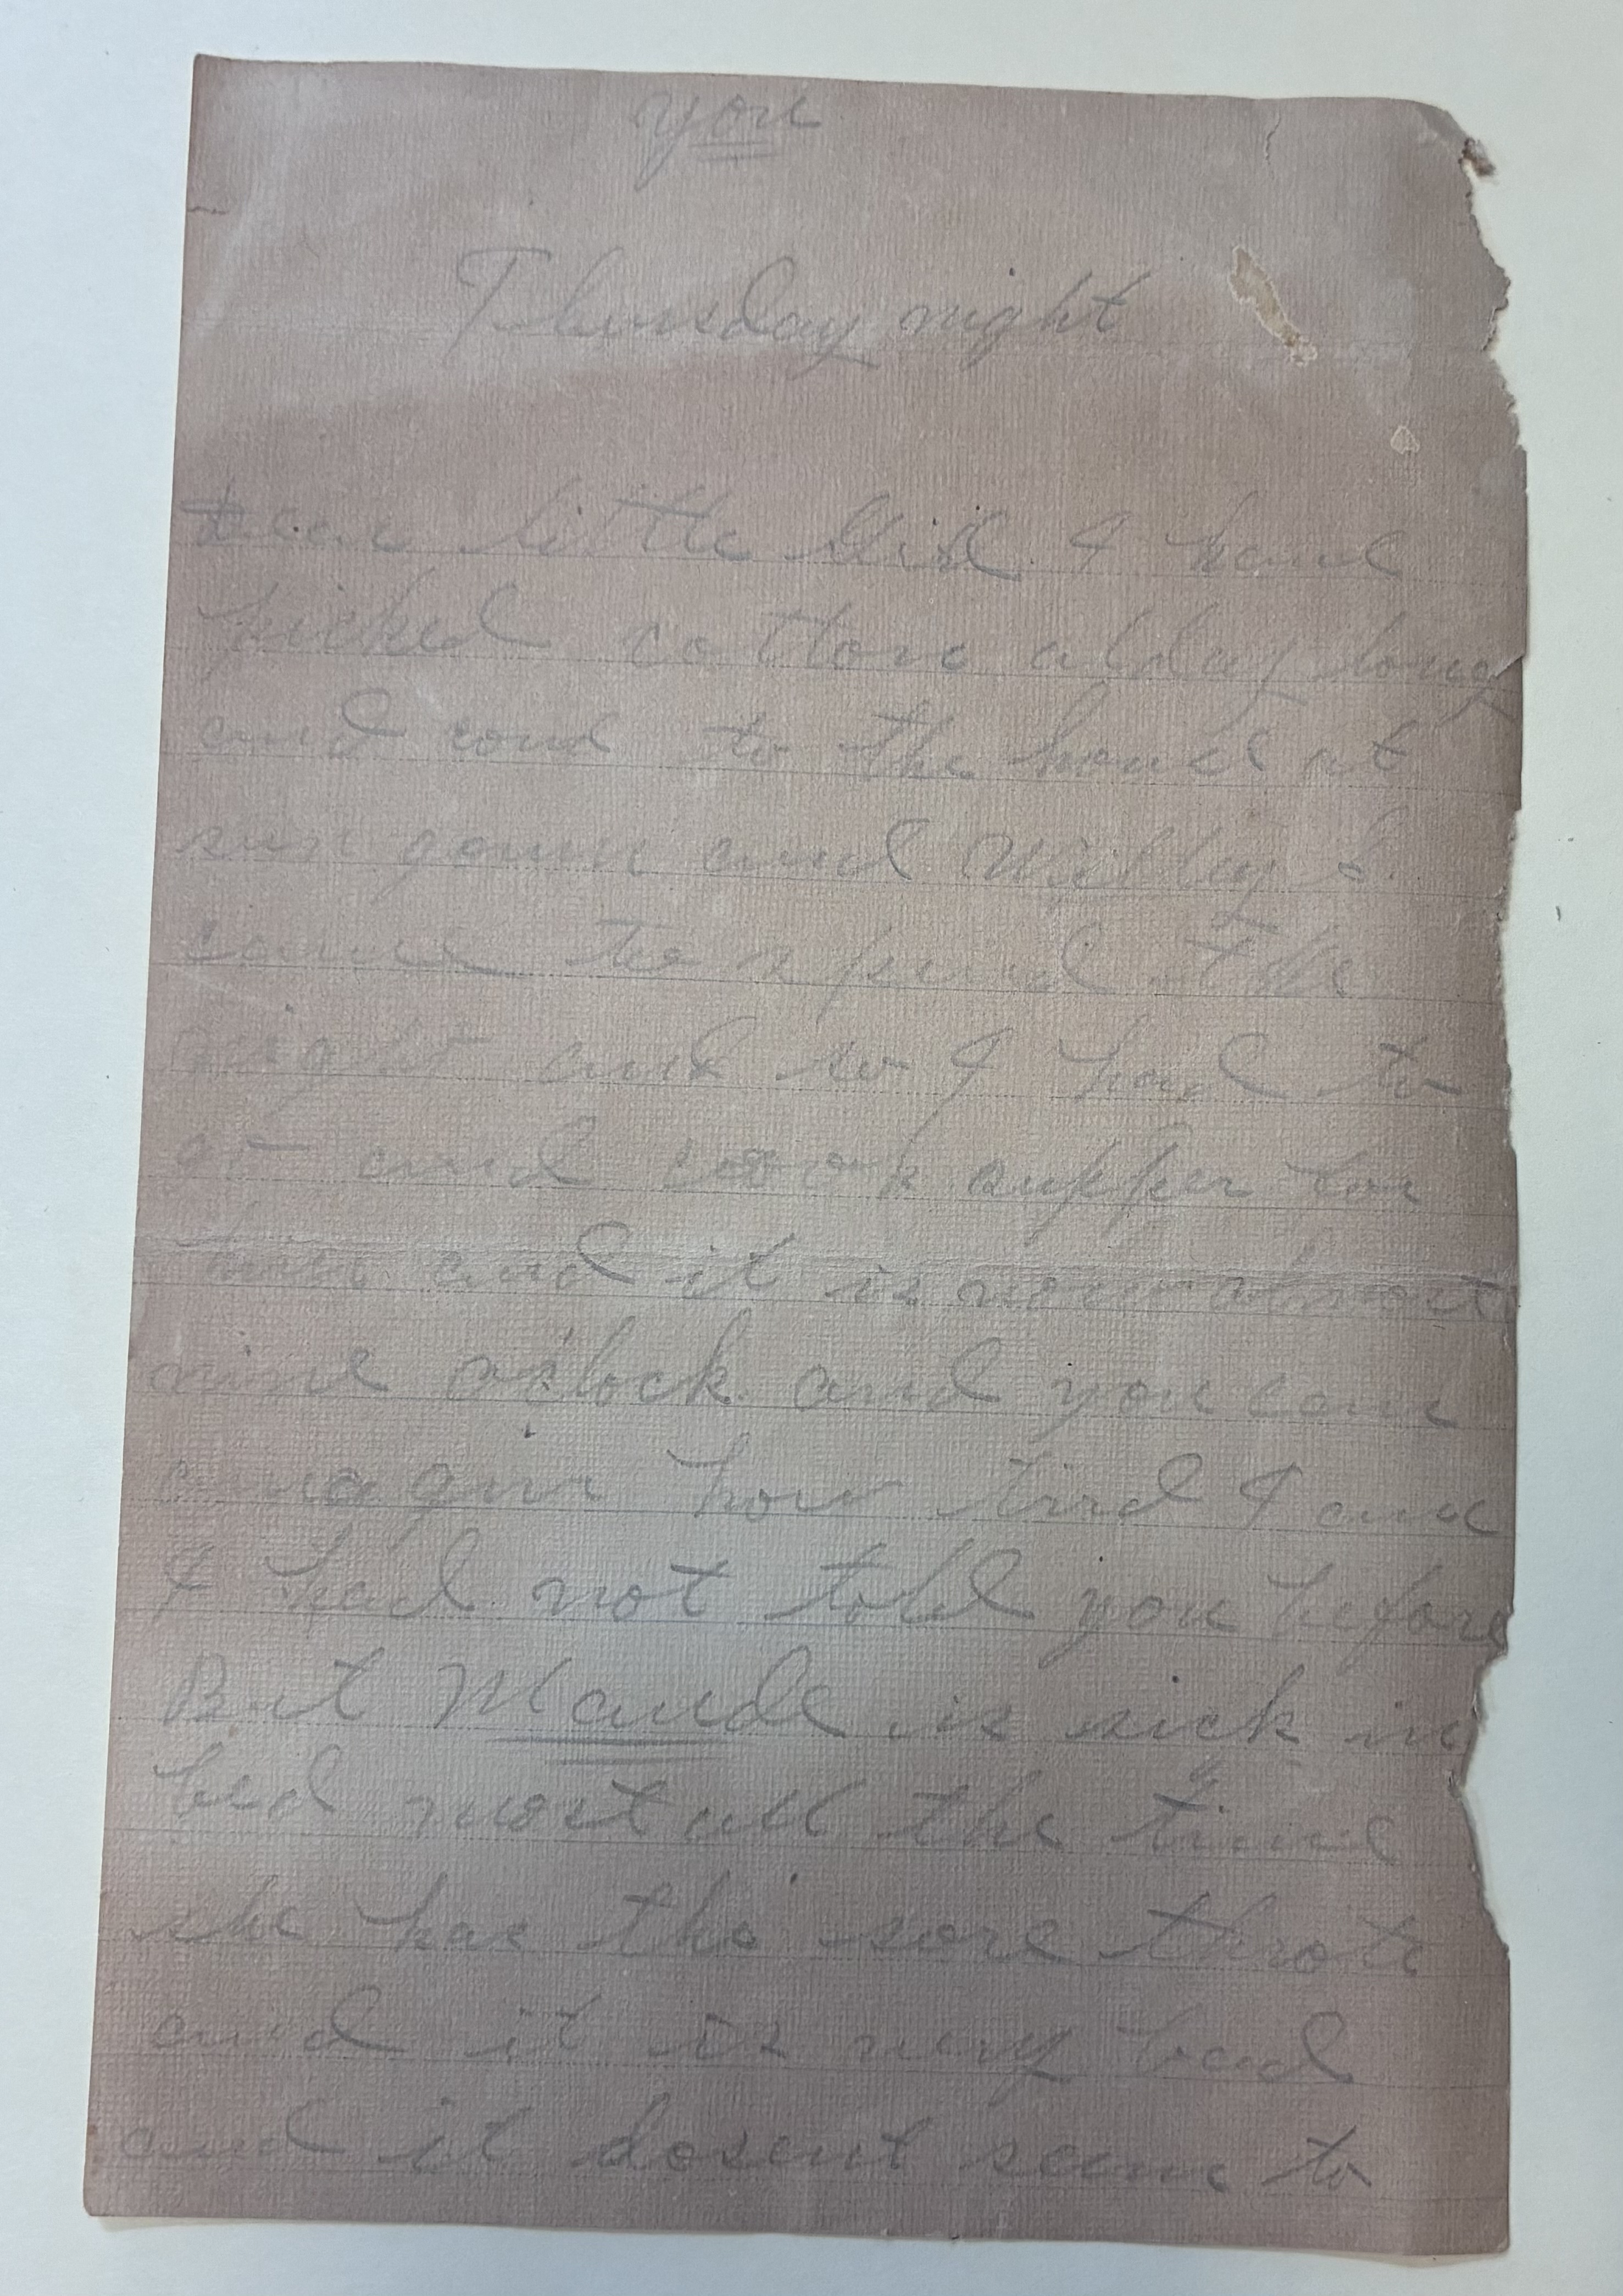 you
Thursday night
Dear little Girl I have
picked cotton all day long
and come to the house at
sun gown and Willey S.
come to spend the
night and so I had to
go and cook supper for
him and it is now about
nine o'clock and you can
emagin how tird I am
I had not told you before
But Maude is sick in
bed most all the time
she has the sore throte
and it is very bad
and it dosent seem to